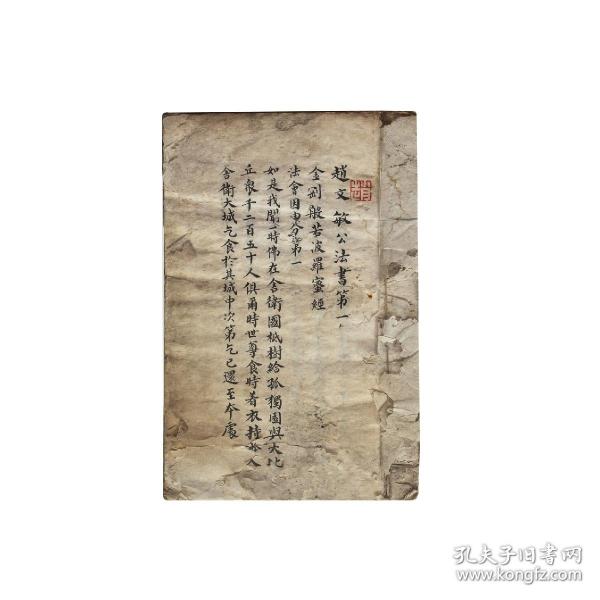 趙文敏公法書第一
金剛般若波羅蜜經
法會因由分第一
如是我聞一時佛在舍衛國祇樹給孤獨園與大比
丘眾千二百五十人俱爾時世尊食時着衣持鉢入
舍衛大城乞食於其城中次第乞已還至本處
孔夫子旧书网
www.kongfz.com